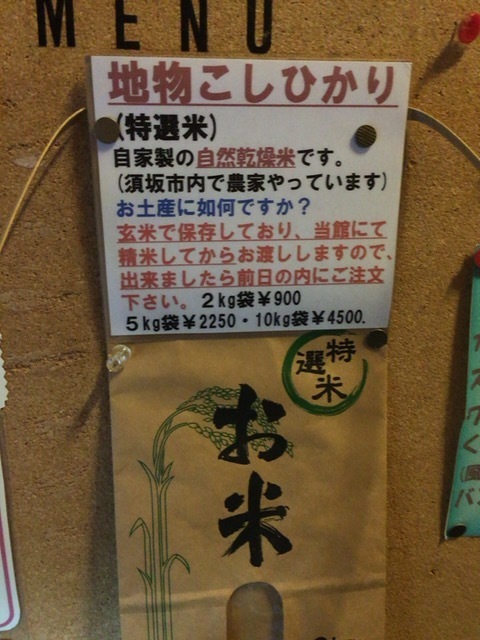 MENU
地物こしひかり
(特選米)
自家製の自然乾燥米です。
(須坂市内で農家やっています)
お土産に如何ですか？
玄米で保存しており、当館にて
精米してからお渡ししますので、
出来ましたら前日の内にご注文
下さい。２kg袋￥900
５kg袋￥2250・10kg袋￥4500.
特選米
お米